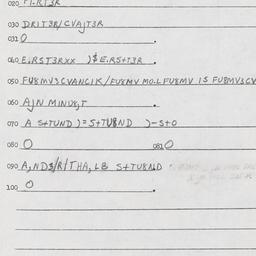 020 FI.RST3R
030 DRIT3R/CVAJT3R
031 O
040 E.RST3RXX )$E.RS+T3R
050 FU8MV3CVANCIK/FU8MV MO.LFU8MV IS FU8MV3CV
060 AJN MINU8,T
070 A S+TUND)=S+TU8ND )-S+O
080 O 081 O
090 A,ND3/R/THA,LB S+TU8ND
100 O